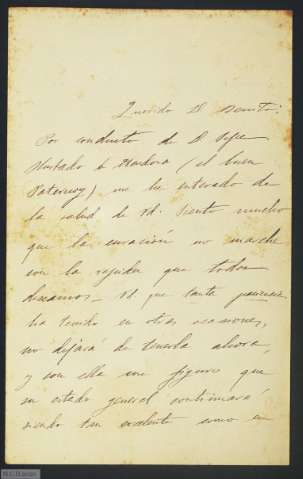 Querido D. Benito:
Por conducto de D. Pepe
Hurtado de Mendoza (el buen
), me he enterado de
la salud de Vd. Siento mucho
que la curación no marche
con la rapidez que todos
deseamos. Vd. que tanta paciencia
ha tenido en otras ocasiones,
no dejará de tenerla ahora,
y con ella me figuro que
su estado general continuará
siendo tan excelente como en